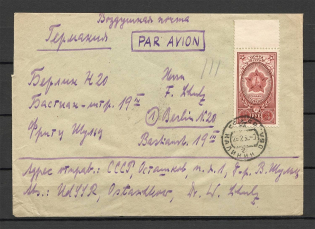 Воздушная почта
Германия
PAR AVION
Берлин N 20
Бастиан-штр. 19
Фритц Шульц
Herrn
F. Schulz
① Berlin N.20
Bastianstr. 19
Адрес отправ.: СССР, Осташков п.я.1, Г-р. В. Шульц
Abs.: UdSSR, Ostaschkow, Dr. W. Schulz